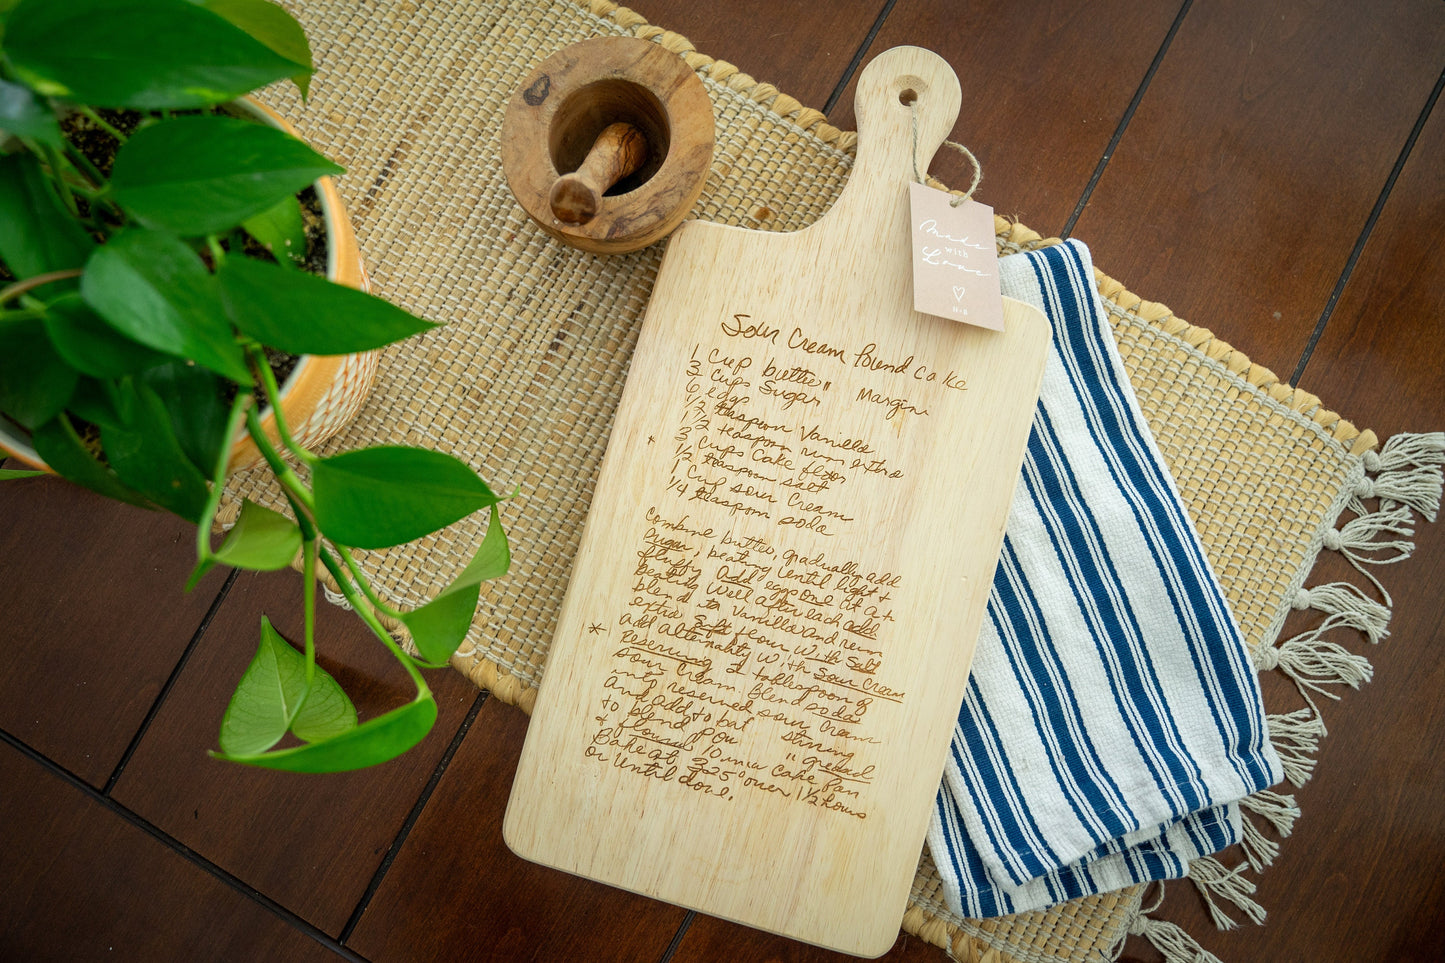 Made
with
Love
H+B
Sour Cream Pound Cake
1 Cup butter " Margin
3 Cups Sugar
6 eggs
1/2 teaspoon Vanilla
1 1/2 teaspoon rum extra
* 3 Cups Cake flour
1/2 teaspoon salt
1 Cup sour Cream
1/4 teaspoon soda
Combine butter, gradually add
Sugar, beating until light +
fluffy. Add eggs one at a t
beating well after each add.
blend in Vanilla and rum
extra. Sift flour with salt
* Add alternality with sour cream
reserving 2 tablespoon of
sour cream. Blend soda
into reserved sour cream
and add to bat stirring
to blend pou " greased
+ floured 10 inch Cake pan
Bake at 325° oven 1 1/2 hours
or until done.